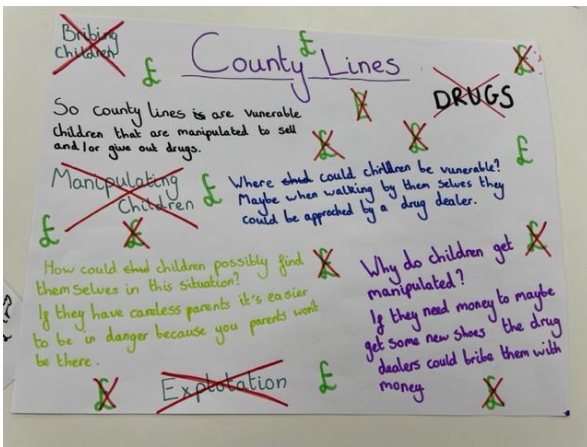 Bribing
Children
£
County Lines
£
£
DRUGS
£
So county lines is are vunerable
children that are manipulated to sell
and/or give out drugs.
£
£
£
Manipulating
Children
£
Where could children be vunerable?
Maybe when walking by them selves they
could be approched by a drug dealer.
£
£
£
How could children possibly find
them selves in this situation?
If they have careless parents it's easier
to be in danger because you parents wont
be there.
£
£
Why do children get
manipulated?
If they need money to maybe
get some new shoes the drug
dealers could bribe them with
money
£
Explotation
£
£